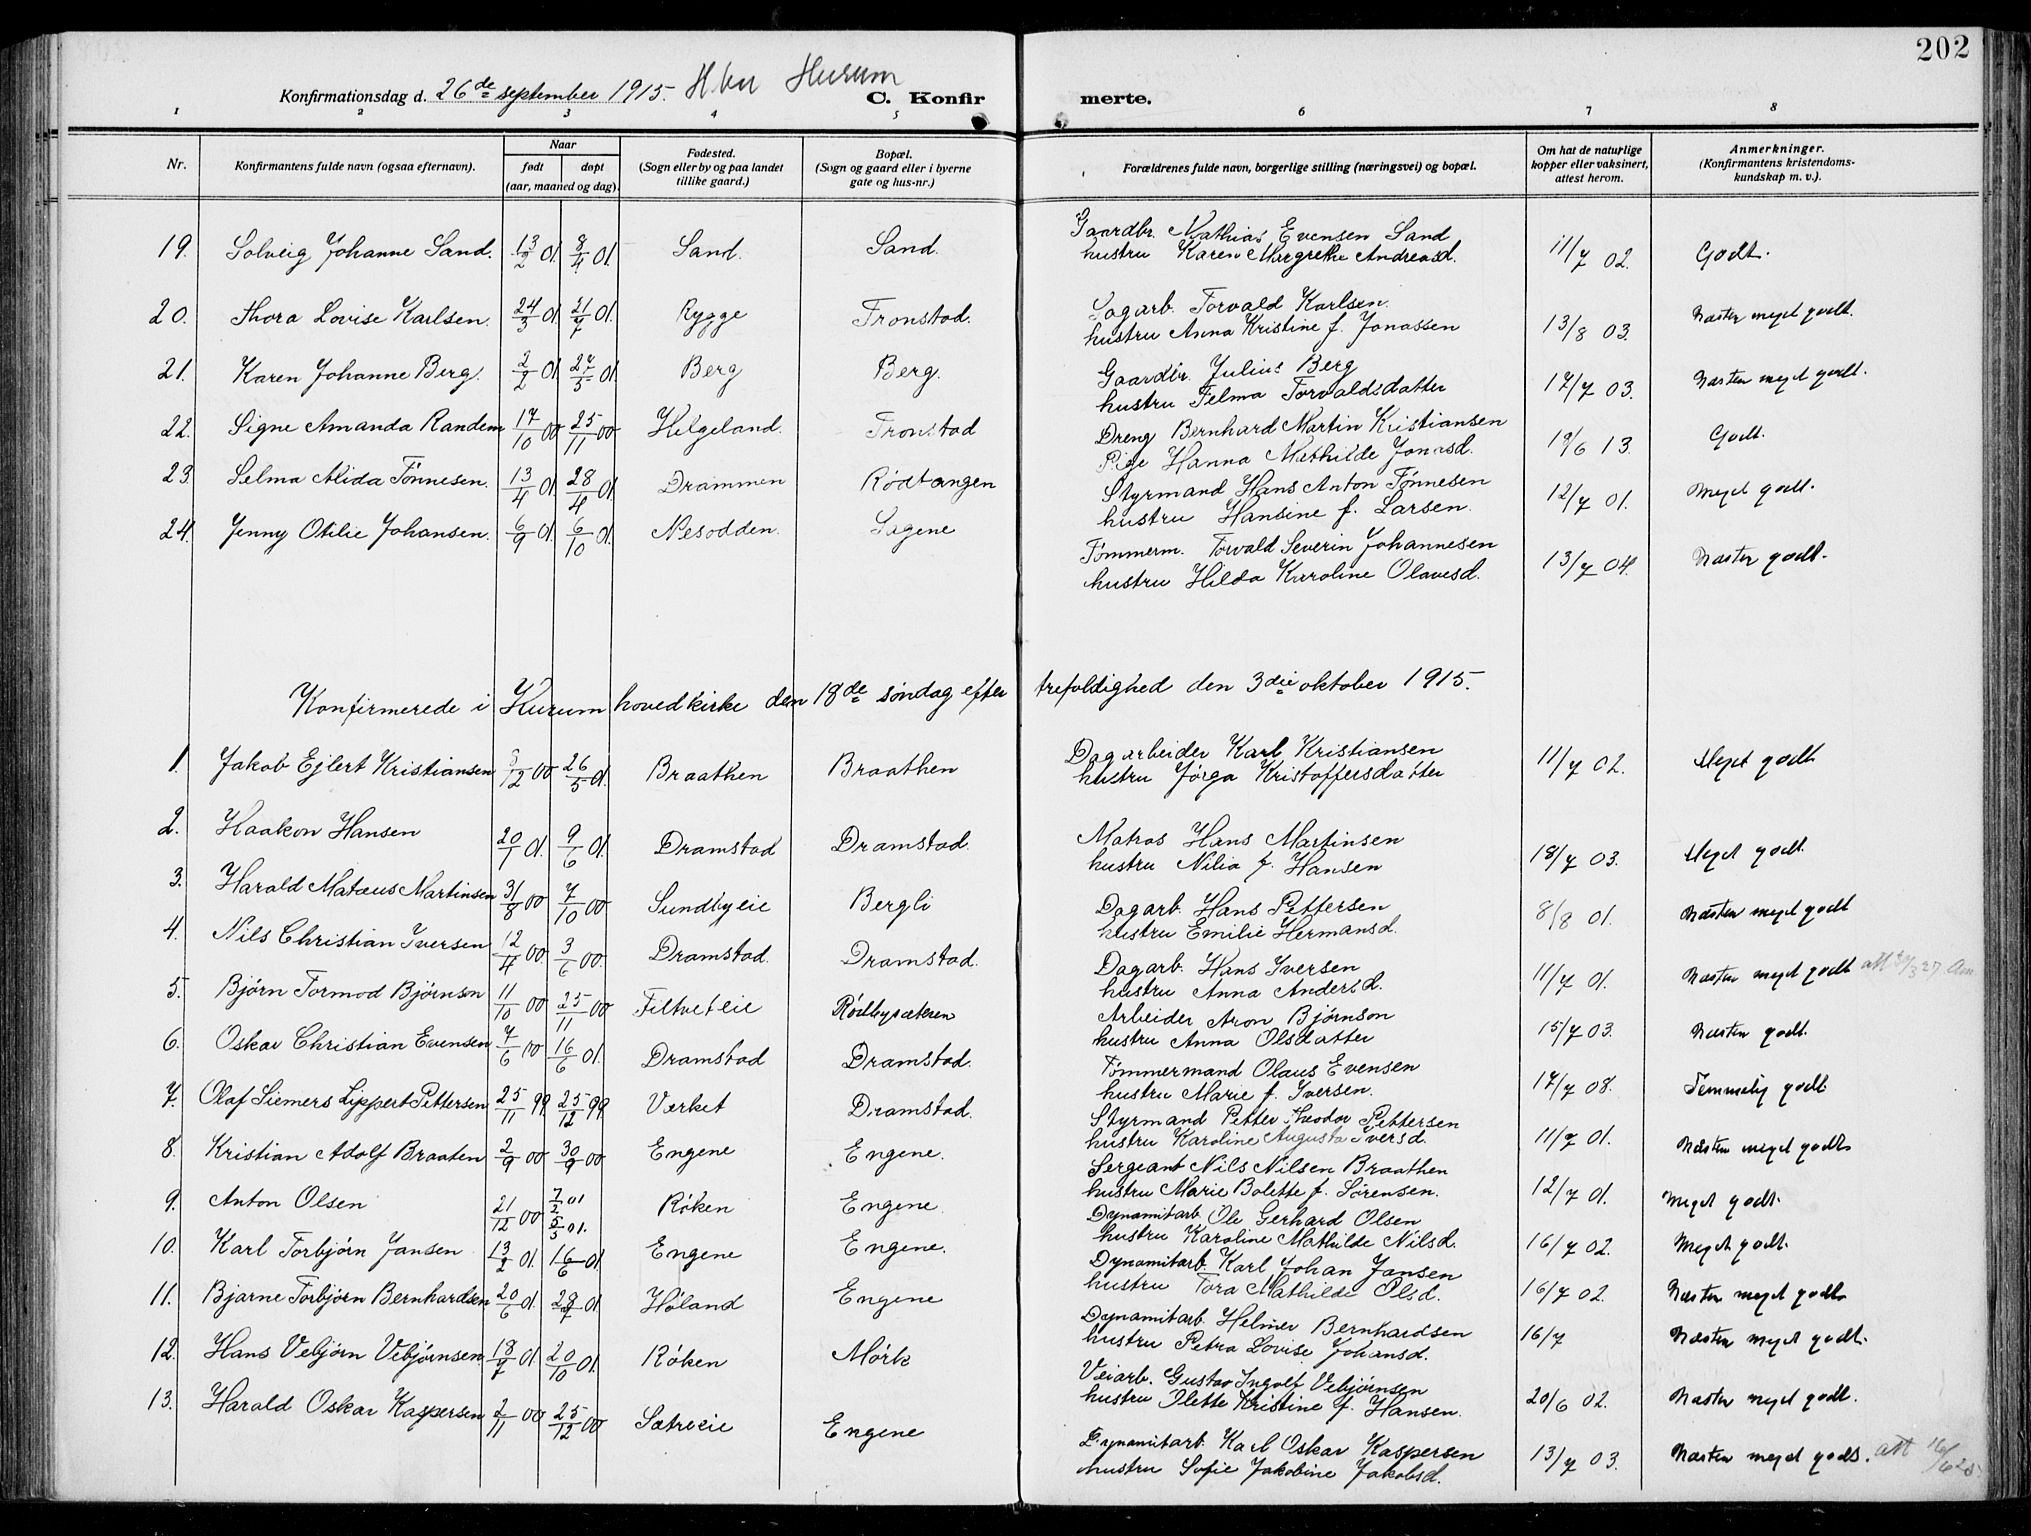 202
Konfirmationsdag d. 26de september 1915. Hurum
C. Konfirmerte.
1 2 3 4 5 6 7 8
Nr.
Konfirmantens fulde navn (ogsaa efternavn).
Naar
født døpt
(aar, maaned og dag).
Fødested.
(Sogn eller by og paa landet
tillike gaard.)
Bopæl.
(Sogn og gaard eller i byerne
gate og hus-nr.)
Forældrenes fulde navn, borgerlige stilling (næringsvei) og bopæl.
Om hat de naturlige
kopper eller vaksinert,
attest herom.
Anmerkninger.
(Konfirmantens kristendoms-
kundskap m. v.).
19. Solveig Johanne Sand. 13/2 01. 8/4 01. Sand. Sand. Gaardbr. Mathias Evensen Sand
hustru Karen Margrethe Andreasd. 11/7 02. Godt.
20. Thora Lovise Karlsen. 24/3 01. 21/7 01. Rygge Tronstad. Dagarb. Torvald Karlsen.
hustru Anna Kristine f. Jonassen 13/8 03. Næsten meget godt.
21. Karen Johanne Berg. 2/2 01. 27/5 01. Berg Berg. Gaardbr. Julius Berg
hustru Telma Torvaldsdatter 17/7 03. Næsten meget godt.
22. Signe Amanda Randem 17/10 00 25/11 00 Helgeland. Tronstad Dreng Bernhard Martin Kristiansen
Pige Hanna Mathilde Jonasd. 19/6 13. Godt.
23. Selma Alida Tønnesen. 13/4 01. 28/4 01. Drammen Rødtangen Styrmand Hans Anton Tønnesen
hustru Hansine f. Larsen. 12/7 01. Meget godt.
24. Jenny Otilie Johansen. 6/9 01. 6/10 01. Nesodden. Sagene Tømmerm. Torvald Severin Johannesen
hustru Hilda Karoline Olavesd. 13/7 04. Næsten godt.
Konfirmerede i Hurum hovedkirke den 18de søndag efter trefoldighed den 3die oktober 1915.
1. Jakob Ejlert Kristiansen /12 00 26/5 01. Braathen Braathen Dagarbeider Karl Kristiansen
hustru Jørga Kristoffersdatter 11/7 02. Meget godt
2. Haakon Hansen 20/1 01. 9/6 01. Dramstad Dramstad. Matros Hans Martinsen
hustru Nilia f. Hansen 18/7 03. Meget godt.
3. Harald Matæus Martinsen 31/8 00 7/10 00 Sundbyeie Bergli Dagarb. Hans Pettersen
hustru Emilie Hermansd. 8/8 01. Næsten meget godt
4. Nils Christian Iversen 12/4 00. 3/6 00. Dramstad. Dramstad. Dagarb. Hans Iversen
hustru Anna Andersd. 11/7 01. Næsten meget godt
5. Bjørn Tormod Bjørnson 11/10 00 25/11 00 Filtveteie Rødbysæteren Arbeider Aron Bjørnson
hustru Anna Olsdatter 15/7 03. Næsten godt.
6. Oskar Christian Evensen 7/6 00 16/6 01. Dramstad Dramstad. Tømmermand Olaus Evensen
hustru Marie f. Iversen. 17/7 08. Temmelig godt
7. Olaf Siemers Lippert Pettersen 25/11 99. 25/12 99. Verket Dramstad. Styrmand Petter Theodor Pettersen
hustru Karoline Augusta Iversd. 11/7 01. Næsten meget godt
8. Kristian Adolf Braaten 2/9 00 30/9 00 Engene Engene. Sergeant Nils Nilsen Braathen
hustru Marie Bolette f. Sørensen. 12/7 01. Meget godt.
9. Anton Olsen 21/12 00 7/2 01 5/5 01. Røken Engene. Dynamitarb. Ole Gerhard Olsen
hustru Karoline Mathilde Nilsd. 16/7 02. Meget godt.
10. Karl Torbjørn Jansen 13/2 01. 16/6 01. Engene Engene. Dynamitarb. Karl Johan Jansen
hustru Tora Mathilde Olsd. 16/7 02. Næsten meget godt
11. Bjarne Torbjørn Bernhardsen 20/6 01. 28/7 01. Høland Engene Dynamitarb. Helmer Bernhardsen
hustru Petra Lovise Johansd. 16/7 Næsten meget godt.
12. Hans Vebjørn Vebjørnsen 18/7 01. 20/10 01. Røken Mørk Veiarb. Gustav Ingolf Vebjørnsen
hustru Olette Kristine f. Hansen. 20/6 02. Næsten meget godt.
13. Harald Oskar Kaspersen 2/11 00 25/12 00 Sætreeie Engene Dynamitarb. Karl Oskar Kaspersen
hustru Sofie Jakobine Jakobsd. 13/7 03. Næsten meget godt. att 16/6